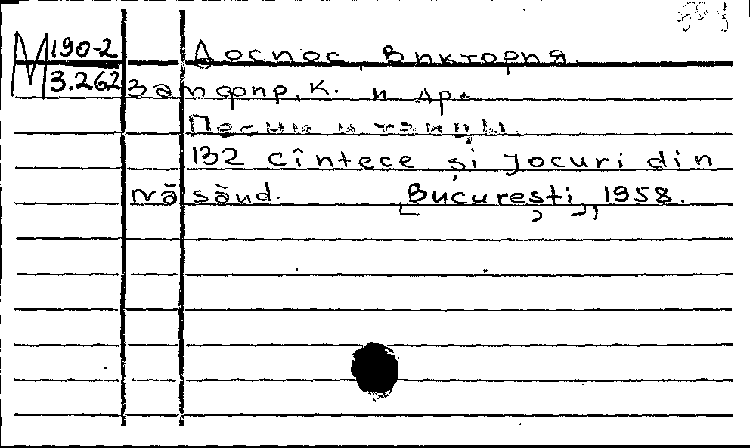 М 190-2
3.262
Доспос, Виктория.
Затфир, К. и др.
Песни и танцы.
132 cîntece şi Jocuri din
Năsăud. Bucureşti, 1958.